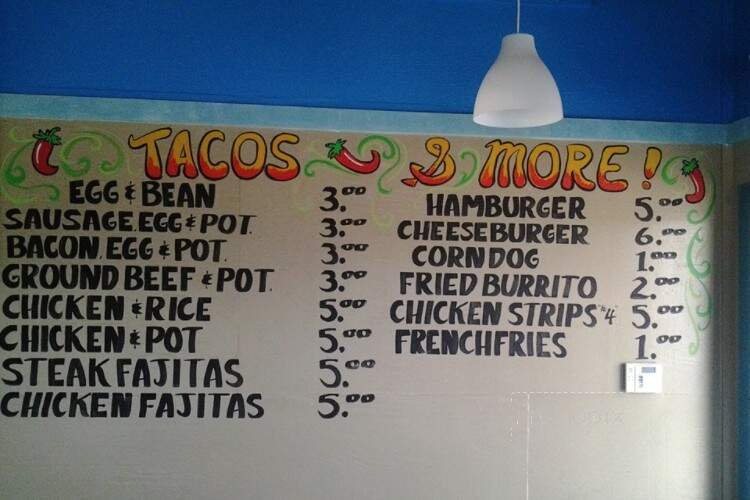 TACOS & MORE!
EGG & BEAN 3.00
SAUSAGE, EGG & POT. 3.00
BACON, EGG & POT. 3.00
GROUND BEEF & POT. 3.00
CHICKEN & RICE 5.00
CHICKEN & POT 5.00
STEAK FAJITAS 5.00
CHICKEN FAJITAS 5.00
HAMBURGER 5.00
CHEESEBURGER 6.00
CORN DOG 1.00
FRIED BURRITO 2.00
CHICKEN STRIPS "4" 5.00
FRENCH FRIES 1.00